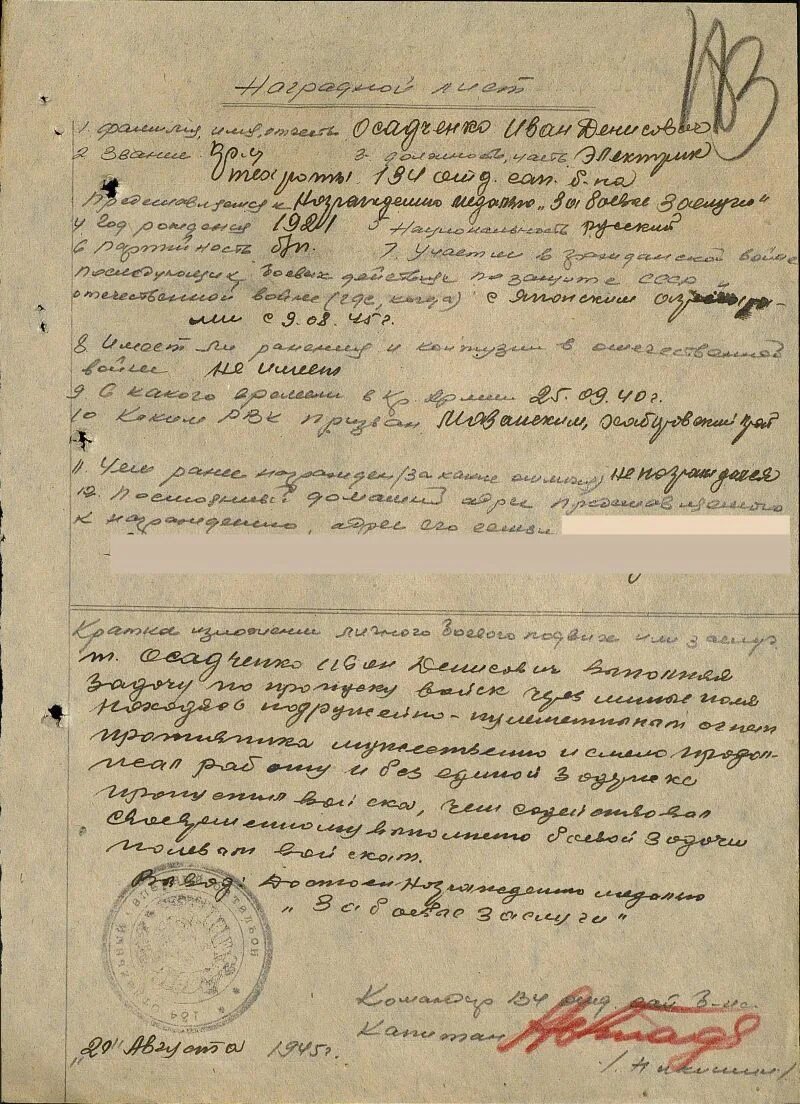 Наградной лист
1. фамилия, имя, отчесть Осадченко Иван Денисович
2 Звание 3. должность, часть Электрик
роты 134 отд. сап. б-на
Представляется к Награждению медалью "За боевые заслуги"
4 Год рождения 1921 5 Национальность русский
6 Партийность б/п. 7. Участие в гражданской войне
последующих боевых действиях по защите СССР и
отечественной войне (где, когда) с Японским
ми с 9.08.45 г.
8 Имеет ли ранения и контузии в отечественной
войне не имеет
9 С какого времени в Кр. Армии 25.09.40 г.
10 Каким РВК призван Хабаровский край
11. Чем ранее награжден (за какие отличия) не награждался
12. Постоянный домашний адрес представляемого
к награждению, адрес его семьи
Кратка изложении личного боевого подвига или заслуг
т. Осадченко Иван Денисович выполняя
задачу по пропуску войск через минные поля
находясь под ружейно-пулеметным огнем
противника мужественно и смело продол-
жал работу и без единой задержки
пропустил войска, чем содействовал
своевременному выполнению боевой задачи
полевым войскам.
Вывод: Достоин Награждению медалью
"За боевые заслуги"
Командир 134 отд.
Капитан
"20" Августа 1945 г.